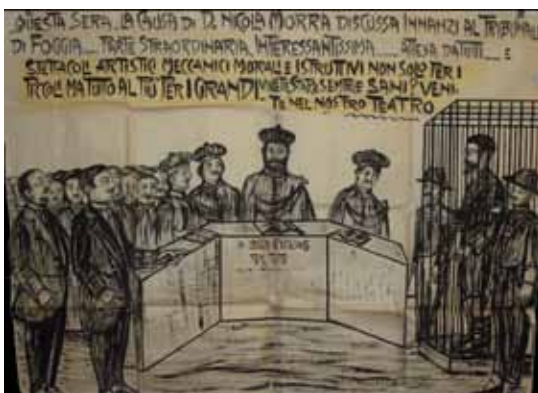 QUESTA SERA LA CAUSA DI D. NICOLA MORRA DISCUSSA INNANZI AL TRIBUNALE
DI FOGGIA.... PARTE STRAORDINARIA, INTERESSANTISSIMA..... ATTESA DA TUTTI..... E
SPETTACOLI ARTISTICI MECCANICI MORALI E ISTRUTTIVI NON SOLO PER I
PICCOLI MA TUTTO AL PIÙ PER I GRANDI. SEMPRE SANI VENI-
TE NEL NOSTRO TEATRO